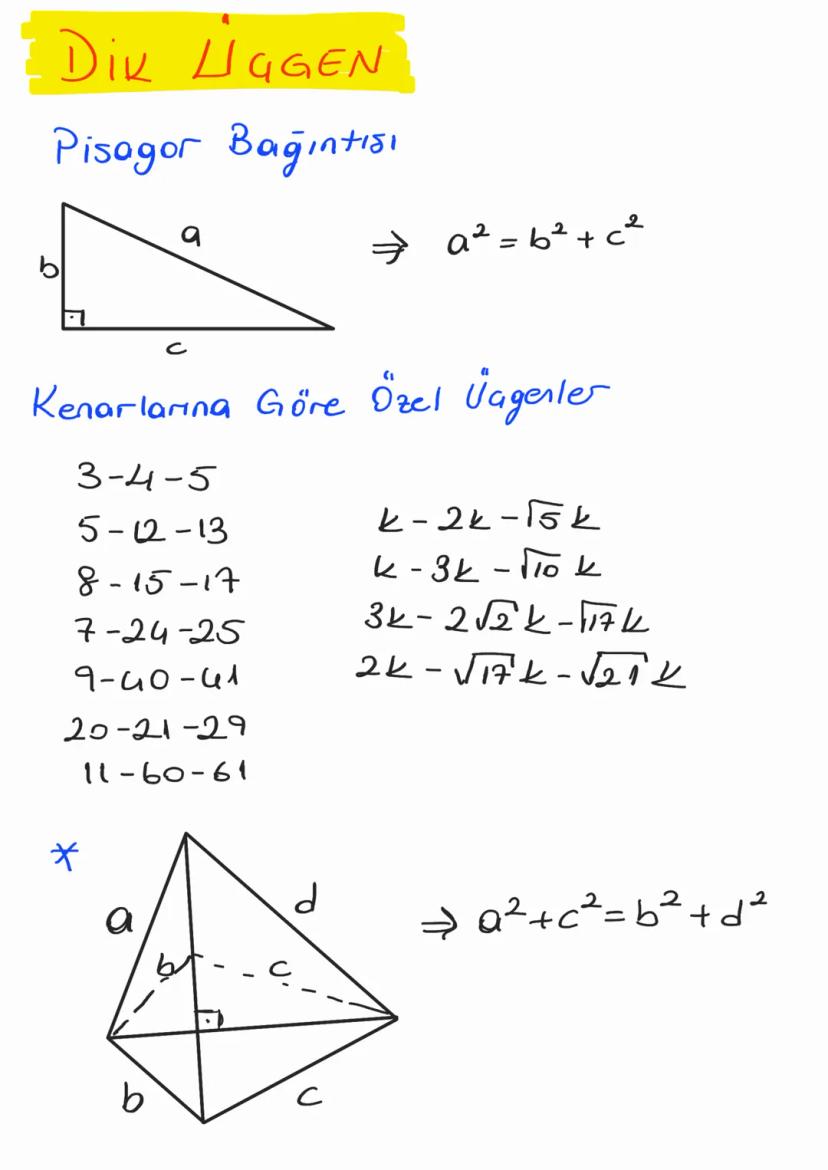 DİK ÜÇGEN
Pisagor Bağıntısı
a
b
c
⇒ a² = b² + c²
Kenarlarına Göre Özel Üçgenler
3-4-5
5-12-13
8-15-17
7-24-25
9-40-41
20-21-29
11-60-61
k - 2k - √5 k
k - 3k - √10 k
3k - 2√2 k - √17 k
2k - √17 k - √21 k
*
a
d
b
c
b
c
⇒ a² + c² = b² + d²